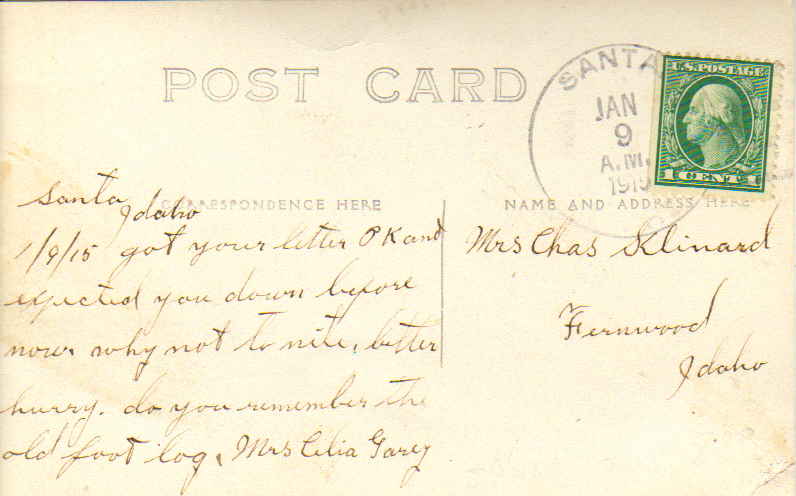 POST CARD
SANTA
JAN
9
A.M.
1915
U.S. POSTAGE
1 CENT 1
CORRESPONDENCE HERE
NAME AND ADDRESS HERE
Santa
Idaho
1/9/15 got your letter OK and
expected you down before
now. why not to nite, better
hurry. do you remember the
old foot log, Mrs Celia Garey
Mrs Chas Klinard
Fernwood
Idaho